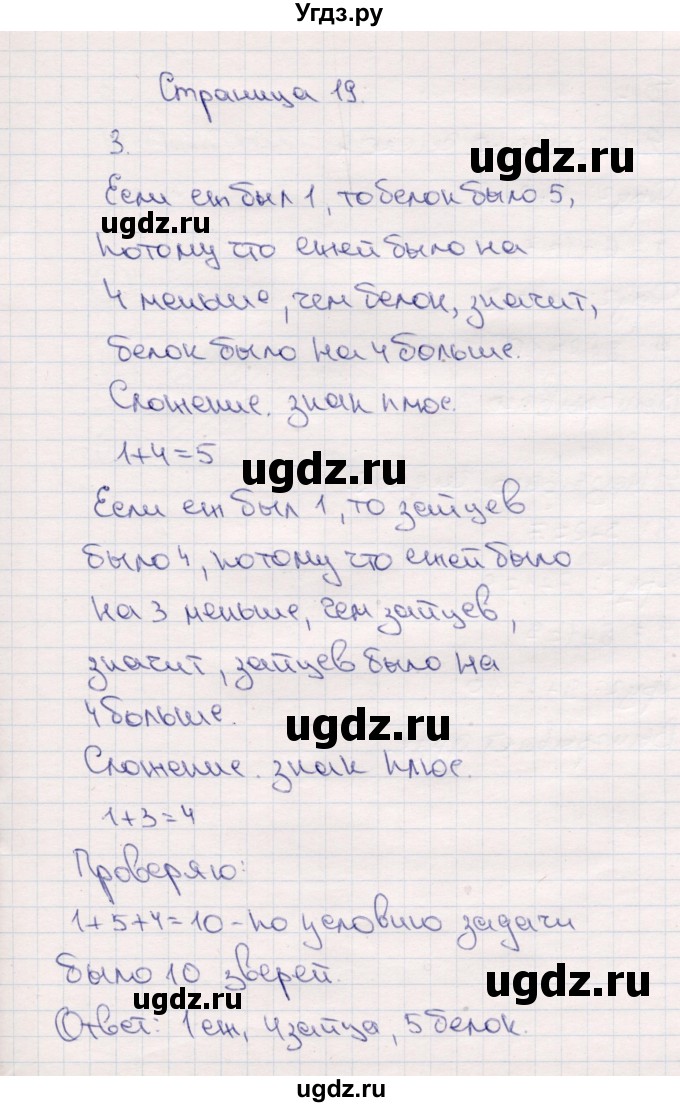 Угдз.ру
Страница 19.
ugdz.ru
3.
Если еж был 1, то белок было 5,
ugdz.ru
потому что ежей было на
4 меньше, чем белок, значит,
белок было на 4 больше.
Сложение. знак плюс.
1+4=5
ugdz.ru
Если еж был 1, то зайцев
было 4, потому что ежей было
на 3 меньше, чем зайцев,
значит, зайцев было на
4 больше.
ugdz.ru
Сложение. знак плюс.
1+3=4
Проверяю:
1+5+4=10 - по условию задачи
было 10 зверей.
ugdz.ru
ugdz.ru
Ответ: 1 еж, 4 зайца, 5 белок.
ugdz.ru